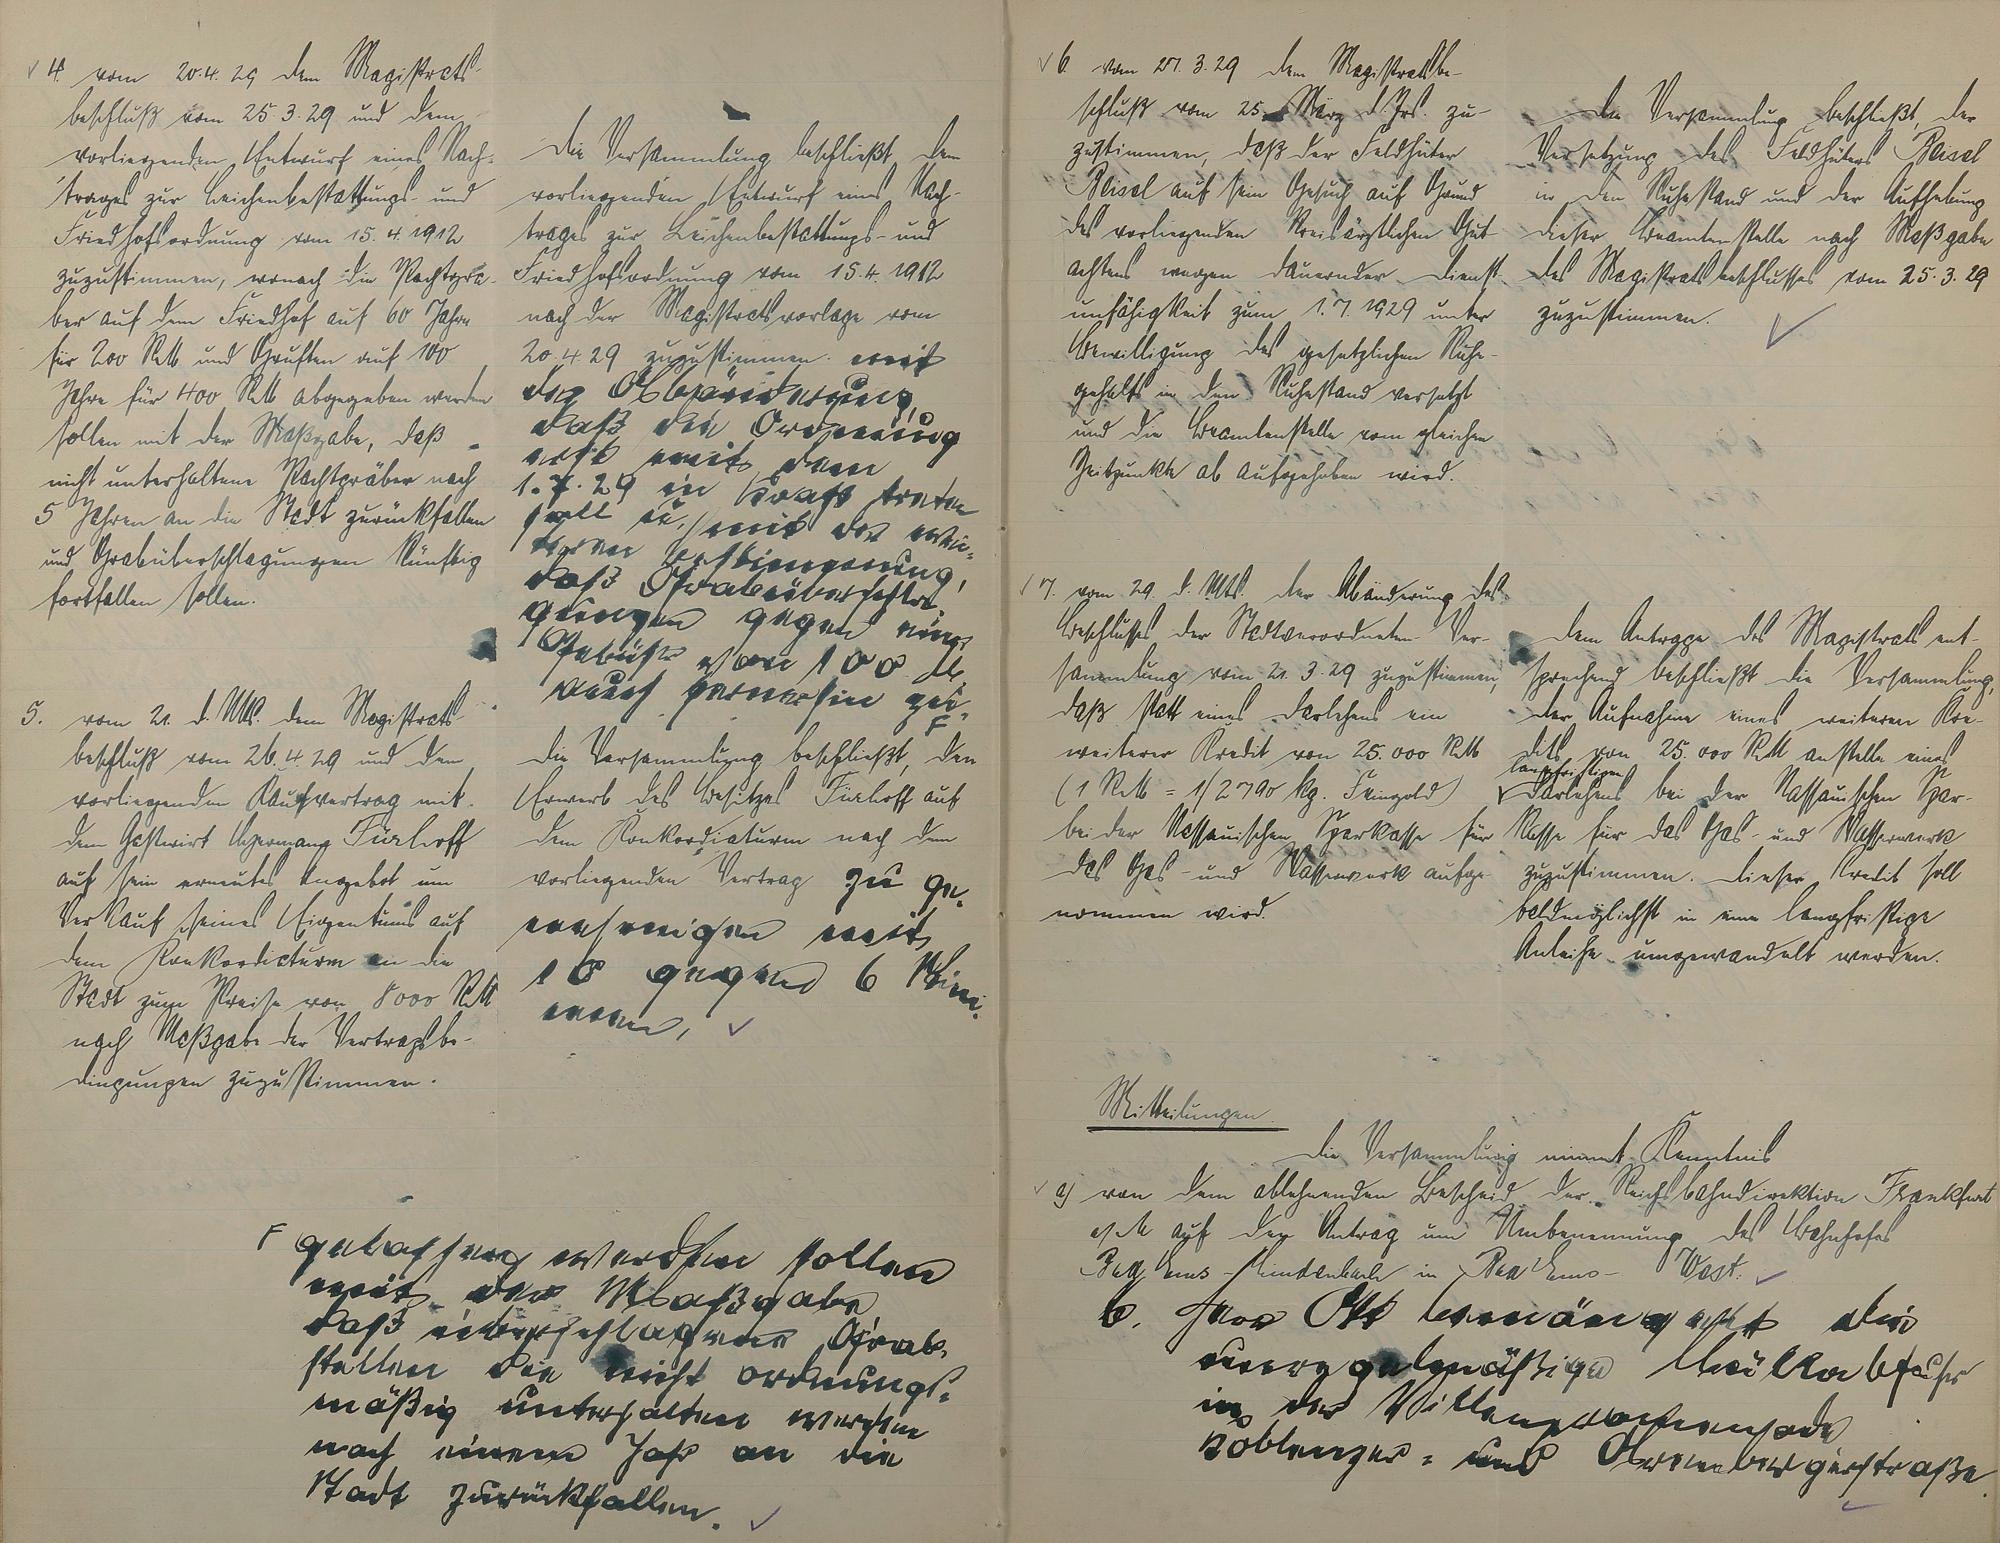 4. vom 20.4.29 dem Magistrats-
beschluß vom 25.3.29 und dem
vorliegenden Entwurf eines Nach-
trages zur Leichenbestattungs- und
Friedhofsordnung vom 15.4.1912
zuzustimmen, wonach die Pachtgrä-
ber auf dem Friedhof auf 60 Jahre
für 200 RM und Gruften auf 100
Jahre für 400 RM abgegeben werden
sollen mit der Maßgabe, daß
nicht unterhaltene Pachtgräber nach
5 Jahren an die Stadt zurückfallen
und Grabüberschlagungen künftig
fortfallen sollen.
Die Versammlung beschließt, dem
vorliegenden Entwurf eines Nach-
trages zur Leichenbestattungs- und
Friedhofsordnung vom 15.4.1912
nach der Magistratsvorlage vom
20.4.29 zuzustimmen mit
der Abänderung,
daß die Ordnung
erst mit dem
1.7.29 in Kraft treten
soll u. mit der wei-
teren Bestimmung,
daß Grabüberschla-
gungen gegen eine
Gebühr von 100 M.
auch fernerhin zu-
F
5. vom 21. d. Mts. dem Magistrats-
beschluß vom 26.4.29 und dem
vorliegenden Kaufvertrag mit
dem Gastwirt Hermann Fürhoff
auf sein erneutes Angebot um
Verkauf seines Eigentums auf
dem Konkordiaturm an die
Stadt zum Preise von 8000 RM
nach Maßgabe der Vertragsbe-
dingungen zuzustimmen.
Die Versammlung beschließt, den
Erwerb des Besitzes Fürhoff auf
dem Konkordiaturm nach dem
vorliegenden Vertrag zu ge-
nehmigen mit
10 gegen 6 Stim-
men.
F gelassen werden sollen
mit der Maßgabe
daß überschlagene Grab-
stellen die nicht ordnungs-
mäßig unterhalten werden
nach einem Jahr an die
Stadt zurückfallen.
6. vom 27.3.29 dem Magistratsbe-
schluß vom 25. März d. Jrs. zu-
zustimmen, daß der Feldhüter
Bleisel auf sein Gesuch auf Grund
des vorliegenden Kreisärztlichen Gut-
achtens wegen dauernder Dienst-
unfähigkeit zum 1.7.1929 unter
Bewilligung des gesetzlichen Ruhe-
gehalts in den Ruhestand versetzt
und die Beamtenstelle vom gleichen
Zeitpunkte ab aufgehoben wird.
Die Versammlung beschließt, der
Versetzung des Feldhüters Bleisel
in den Ruhestand und der Aufhebung
dieser Beamtenstelle nach Maßgabe
des Magistratsbeschlusses vom 25.3.29
zuzustimmen.
7. vom 29. d. Mts. der Abänderung des
Beschlusses der Stadtverordneten-Ver-
sammlung vom 21.3.29 zuzustimmen,
daß statt eines Darlehens ein
weiterer Kredit von 25.000 RM
(1 RM = 1/2790 kg. Feingold)
bei der Nassauischen Sparkasse für
das Gas- und Wasserwerk aufge-
nommen wird.
Dem Antrage des Magistrats ent-
sprechend beschließt die Versammlung,
der Aufnahme eines weiteren Kre-
dits von 25.000 RM anstelle eines
langfristigen
Darlehens bei der Nassauischen Spar-
kasse für das Gas- und Wasserwerk
zuzustimmen. Dieser Kredit soll
baldmöglichst in eine langfristige
Anleihe umgewandelt werden.
Mitteilungen
Die Versammlung nimmt Kenntnis
a) von dem ablehnenden Bescheid der Reichsbahndirektion Frankfurt
a/M auf den Antrag um Umbenennung des Bahnhofes
Bad Ems-Lindenbach in Bad Ems-West.
b. Herr Ott bemängelt die
unregelmäßige Müllabfuhr
in der Villenpromenade
Koblenzer- und Arenbergerstraße.